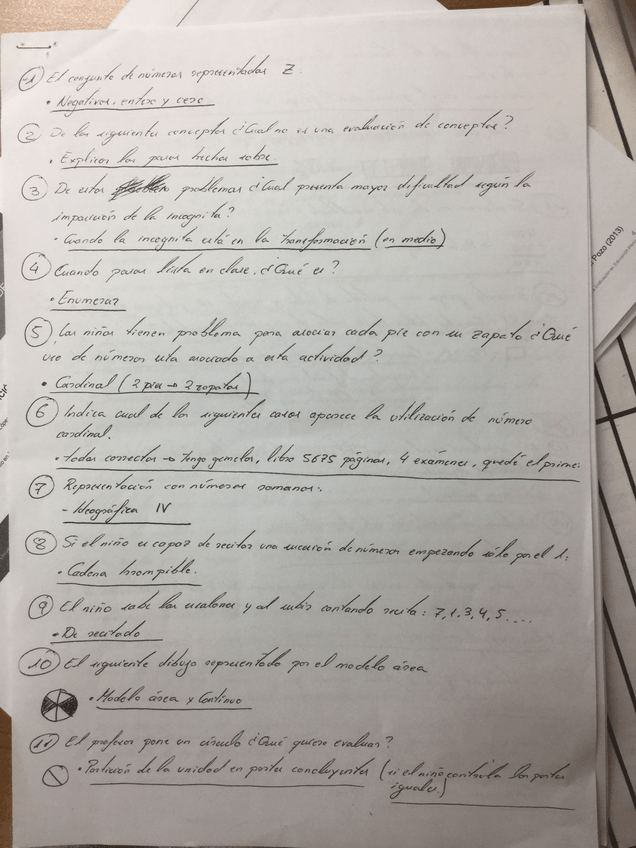 1 El conjunto de números representados Z:
• Negativos, entero y cero
2 De los siguientes conceptos ¿Cual no es una evaluación de conceptos?
• Explicar los pasos hechos sobre
3 De estos problemas ¿Cual presenta mayor dificultad según la
imposición de la incognita?
• Cuando la incognita está en la transformación (en medio)
4 Cuando pasar lista en clase, ¿Qué es?
• Enumerar
5 Los niños tienen problema para asociar cada pie con su zapato ¿Qué
uso de números esta asociado a esta actividad?
• Cardinal (2 pies → 2 zapatos)
6 Indica cual de los siguientes casos aparece la utilización de número
cardinal.
• todas correctas → tengo gemelos, libro 5675 páginas, 4 exámenes, quedé el prime
7 Representación con números romanos:
- Ideográfica IV
8 Si el niño es capaz de recitar una sucesión de números empezando sólo por el 1:
• Cadena Irrompible.
9 El niño sube las escaleras y al subir contando recita: 7, 1, 3, 4, 5....
• De recitado
10 El siguiente dibujo representado por el modelo área
• Modelo área y Continuo
11 El profesor pone un círculo ¿Qué quiere evaluar?
• Partición de la unidad en partes concluyentes (si el niño controla las partes
iguales)
Pozo (2013)